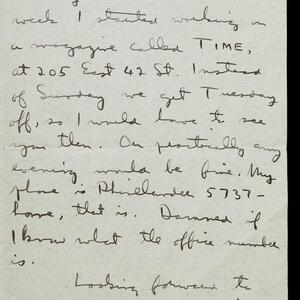 week I started working on
a magazine called TIME,
at 205 East 42 St. Instead
of Sunday we get Tuesday
off, so I would have to see
you then. On practically any
evening would be fine. My
phone is Rhinelander 5737 -
home, that is. Damned if
I know what the office number
is.
Looking forward to